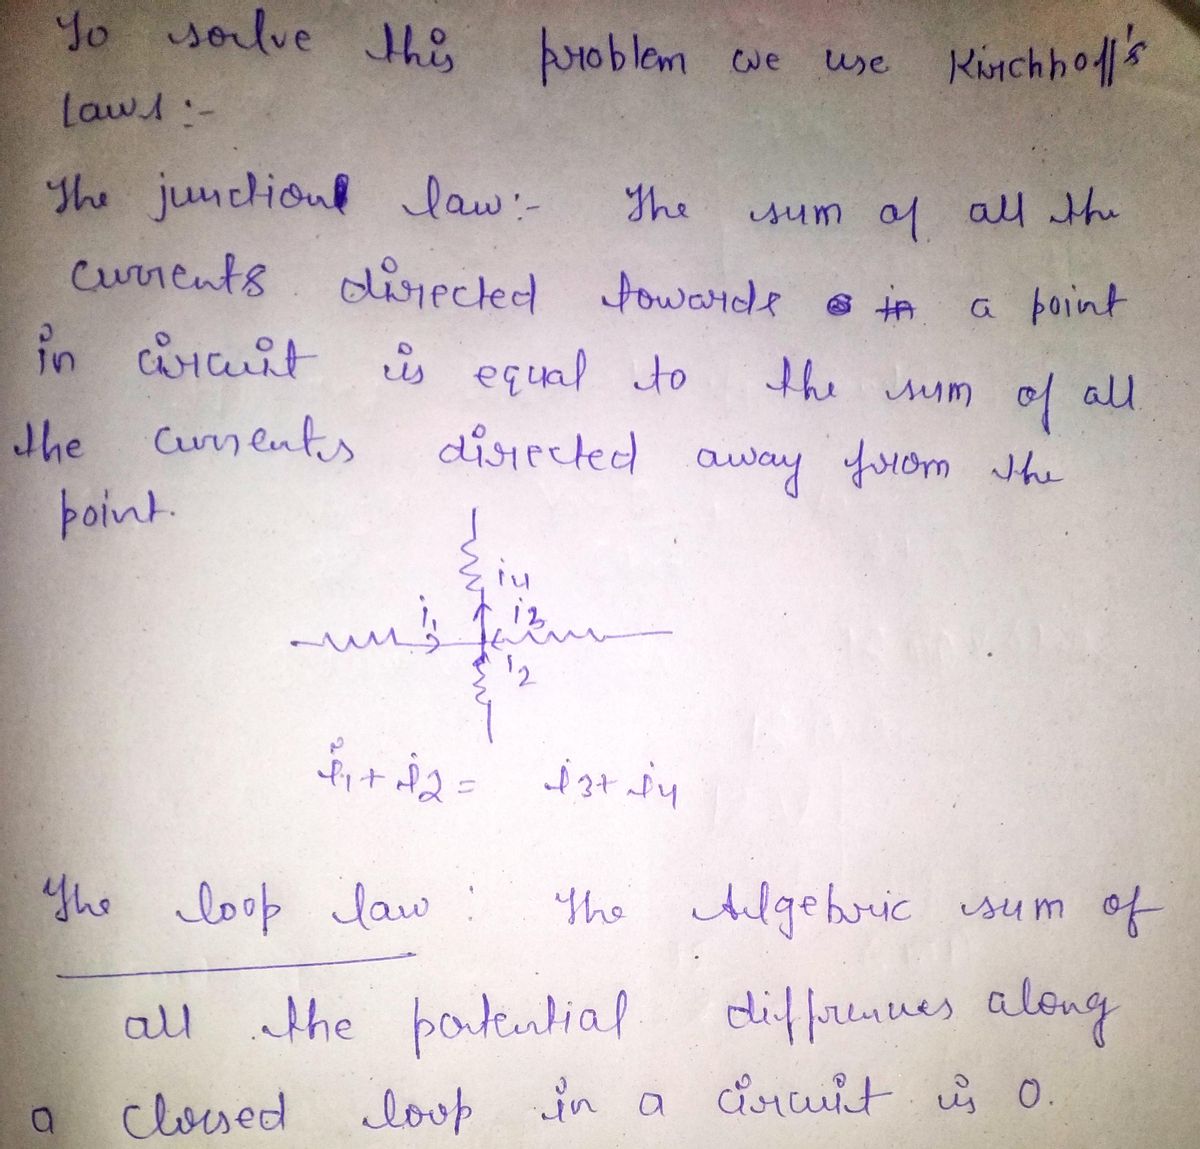 To solve this problem we use Kirchhoff's
Laws :-
The junction law :- The sum of all the
currents directed towards a point
in circuit is equal to the sum of all
the currents directed away from the
point.
i4
i1 i3
i2
i1 + i2 = i3 + i4
The loop law : The Algebric sum of
all the potential diffrences along
a closed loop in a circuit is 0.